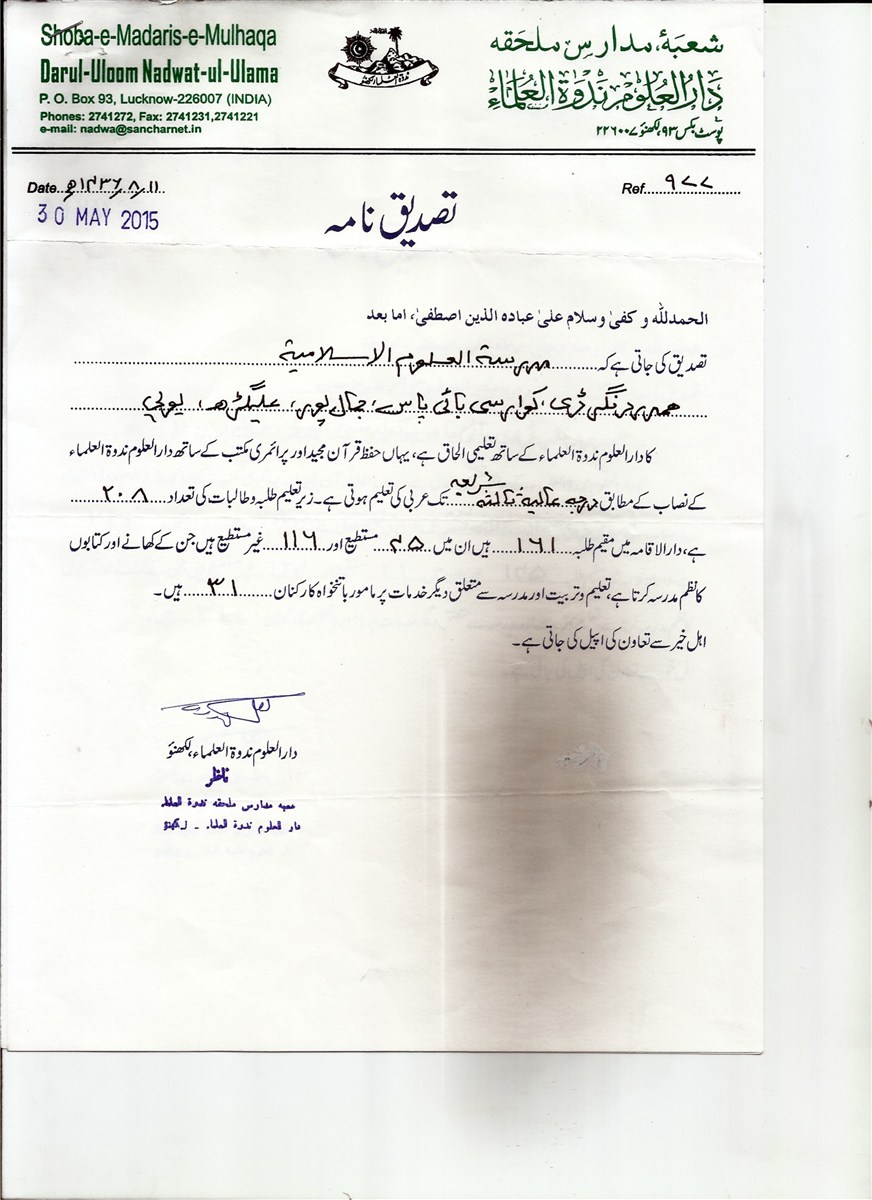 Shoba-e-Madaris-e-Mulhaqa
Darul-Uloom Nadwat-ul-Ulama
P. O. Box 93, Lucknow-226007 (INDIA)
Phones: 2741272, Fax: 2741231,2741221
e-mail: nadwa@sancharnet.in
شعبۂ مدارس ملحقہ
دَارُالعُلوم نَدوَۃُ العُلَمَاء
پوسٹ بکس ۹۳، لکھنؤ ۲۲۶۰۰۷
Date ۱۱/۸/۱۴۳۶ھ
30 MAY 2015
Ref ۹۷۷
تصدیق نامہ
الحمدللہ و کفیٰ وسلام علیٰ عبادہ الذین اصطفیٰ، اما بعد
تصدیق کی جاتی ہے کہ مدرسۃ العلوم الاسلامیۃ
ہمدرد نگر ڈی، کوارسی بائی پاس، جمال پور، علیگڑھ، یوپی
کا دارالعلوم ندوۃ العلماء کے ساتھ تعلیمی الحاق ہے، یہاں حفظ قرآن مجید اور پرائمری مکتب کے ساتھ دارالعلوم ندوۃ العلماء
کے نصاب کے مطابق درجہ عالیہ ثالثہ شریعہ تک عربی کی تعلیم ہوتی ہے۔ زیر تعلیم طلبہ و طالبات کی تعداد ۲۰۸
ہے، دارالاقامہ میں مقیم طلبہ ۱۶۱ ہیں ان میں ۴۵ مستطیع اور ۱۱۶ غیر مستطیع ہیں جن کے کھانے اور کتابوں
کا نظم مدرسہ کرتا ہے، تعلیم و تربیت اور مدرسہ سے متعلق دیگر خدمات پر مامور باتنخواہ کارکنان ۳۱ ہیں۔
اہل خیر سے تعاون کی اپیل کی جاتی ہے۔
دارالعلوم ندوۃ العلماء، لکھنؤ
ناظر
شعبہ مدارس ملحقہ ندوۃ العلماء
دار العلوم ندوۃ العلماء ـ لکھنؤ